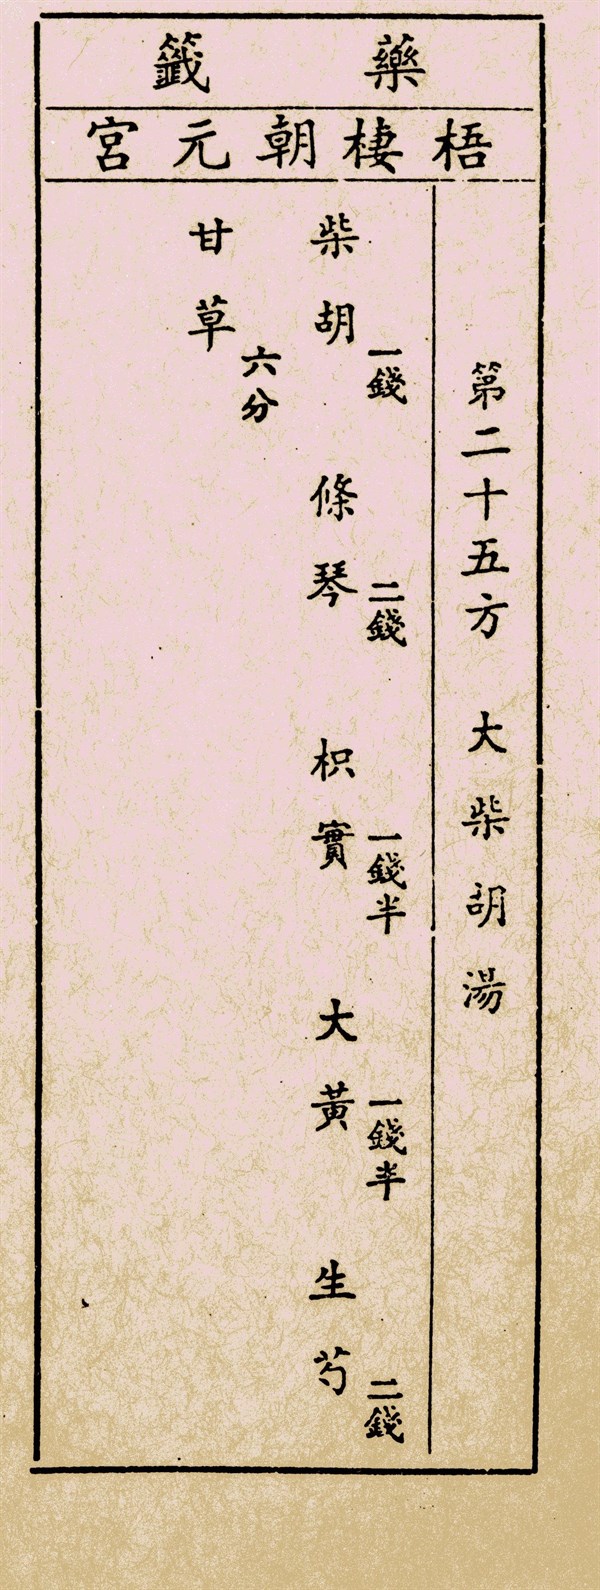 藥籤
梧棲朝元宮
第二十五方 大柴胡湯
柴胡一錢 條琴二錢 枳實一錢半 大黃一錢半 生芍二錢
甘草六分